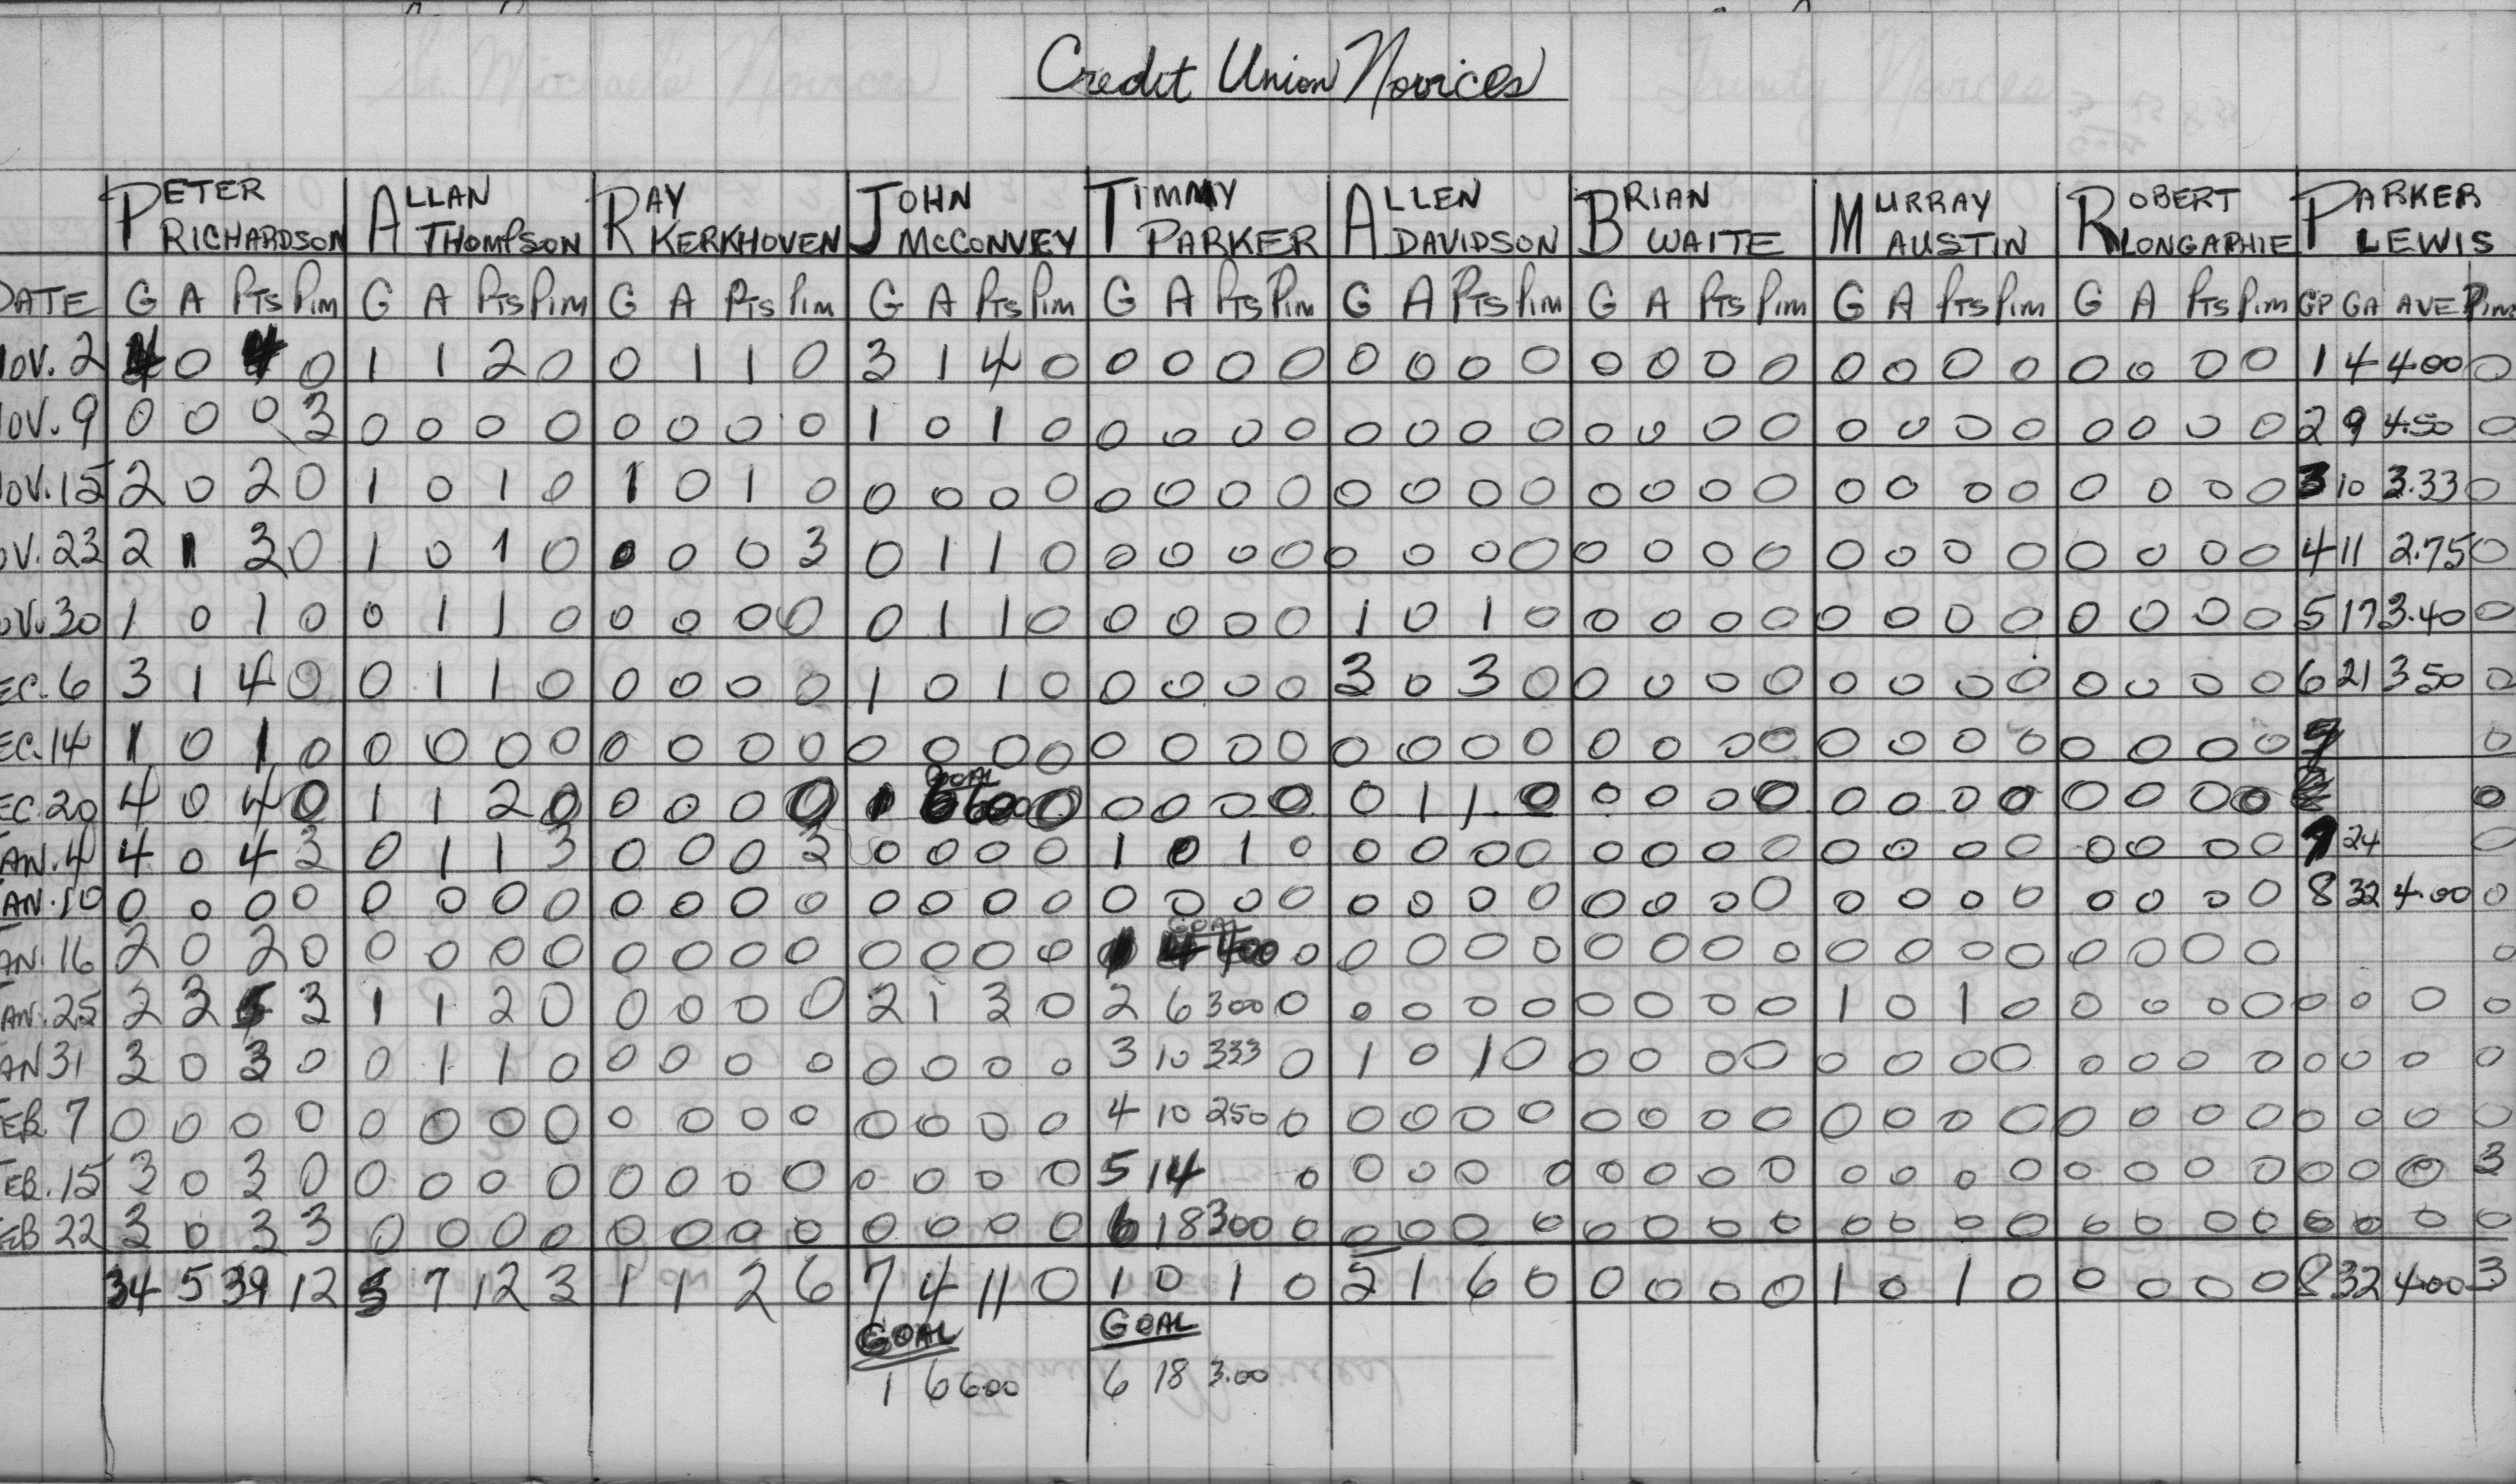 Credit Union Novices
PETER RICHARDSON ALLAN THOMPSON RAY KERKHOVEN JOHN McCONVEY TIMMY PARKER ALLEN DAVIDSON BRIAN WAITE MURRAY AUSTIN ROBERT LONGAPHIE PARKER LEWIS
DATE G A PTS PIM G A PTS PIM G A PTS PIM G A PTS PIM G A PTS PIM G A PTS PIM G A PTS PIM G A PTS PIM G A PTS PIM GP GA AVE PIM
NOV. 2 4 0 4 0 1 1 2 0 0 1 1 0 3 1 4 0 0 0 0 0 0 0 0 0 0 0 0 0 0 0 0 0 0 0 0 0 1 4 4.00 0
NOV. 9 0 0 0 3 0 0 0 0 0 0 0 0 1 0 1 0 0 0 0 0 0 0 0 0 0 0 0 0 0 0 0 0 0 0 0 0 2 9 4.50 0
NOV. 15 2 0 2 0 1 0 1 0 1 0 1 0 0 0 0 0 0 0 0 0 0 0 0 0 0 0 0 0 0 0 0 0 0 0 0 0 3 10 3.33 0
NOV. 23 2 1 3 0 1 0 1 0 0 0 0 3 0 1 1 0 0 0 0 0 0 0 0 0 0 0 0 0 0 0 0 0 0 0 0 0 4 11 2.75 0
NOV. 30 1 0 1 0 0 1 1 0 0 0 0 0 0 1 1 0 0 0 0 0 1 0 1 0 0 0 0 0 0 0 0 0 0 0 0 0 5 17 3.40 0
DEC. 6 3 1 4 0 0 1 1 0 0 0 0 0 1 0 1 0 0 0 0 0 3 0 3 0 0 0 0 0 0 0 0 0 0 0 0 0 6 21 3.50 0
DEC. 14 1 0 1 0 0 0 0 0 0 0 0 0 0 0 0 0 0 0 0 0 0 0 0 0 0 0 0 0 0 0 0 0 0 0 0 0 0
GOAL
DEC. 20 4 0 4 0 1 1 2 0 0 0 0 0 1 6 600 0 0 0 0 0 0 1 1 0 0 0 0 0 0 0 0 0 0 0 0 0 0
JAN. 4 4 0 4 3 0 1 1 3 0 0 0 3 0 0 0 0 1 0 1 0 0 0 0 0 0 0 0 0 0 0 0 0 0 0 0 0 7 24 0
JAN. 10 0 0 0 0 0 0 0 0 0 0 0 0 0 0 0 0 0 0 0 0 0 0 0 0 0 0 0 0 0 0 0 0 0 0 0 0 8 32 4.00 0
GOAL
JAN. 16 2 0 2 0 0 0 0 0 0 0 0 0 0 0 0 0 1 4 400 0 0 0 0 0 0 0 0 0 0 0 0 0 0 0 0 0 0
JAN. 25 2 3 5 3 1 1 2 0 0 0 0 0 2 1 3 0 2 6 300 0 0 0 0 0 0 0 0 0 1 0 1 0 0 0 0 0 0 0 0 0
JAN 31 3 0 3 0 0 1 1 0 0 0 0 0 0 0 0 0 3 10 333 0 1 0 1 0 0 0 0 0 0 0 0 0 0 0 0 0 0 0 0 0
FEB. 7 0 0 0 0 0 0 0 0 0 0 0 0 0 0 0 0 4 10 250 0 0 0 0 0 0 0 0 0 0 0 0 0 0 0 0 0 0 0 0 0
FEB. 15 3 0 3 0 0 0 0 0 0 0 0 0 0 0 0 0 5 14 0 0 0 0 0 0 0 0 0 0 0 0 0 0 0 0 0 0 0 0 3
FEB 22 3 0 3 3 0 0 0 0 0 0 0 0 0 0 0 0 6 18 300 0 0 0 0 0 0 0 0 0 0 0 0 0 0 0 0 0 0 0 0 0
34 5 39 12 5 7 12 3 1 1 2 6 7 4 11 0 1 0 1 0 5 1 6 0 0 0 0 0 1 0 1 0 0 0 0 0 8 32 4.00 3
GOAL GOAL
1 6 6.00 6 18 3.00